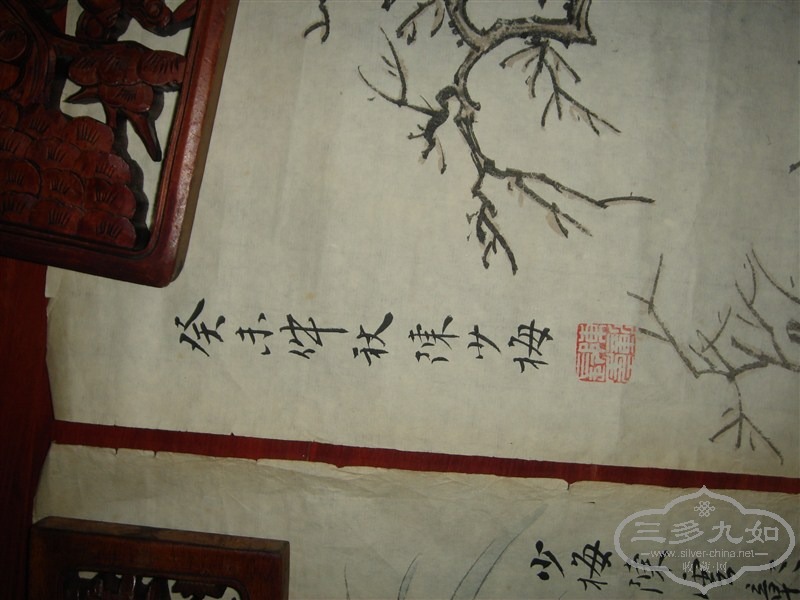 癸未仲秋陳少梅
少梅陳
三多九如
www.silver-china.net
收藏网